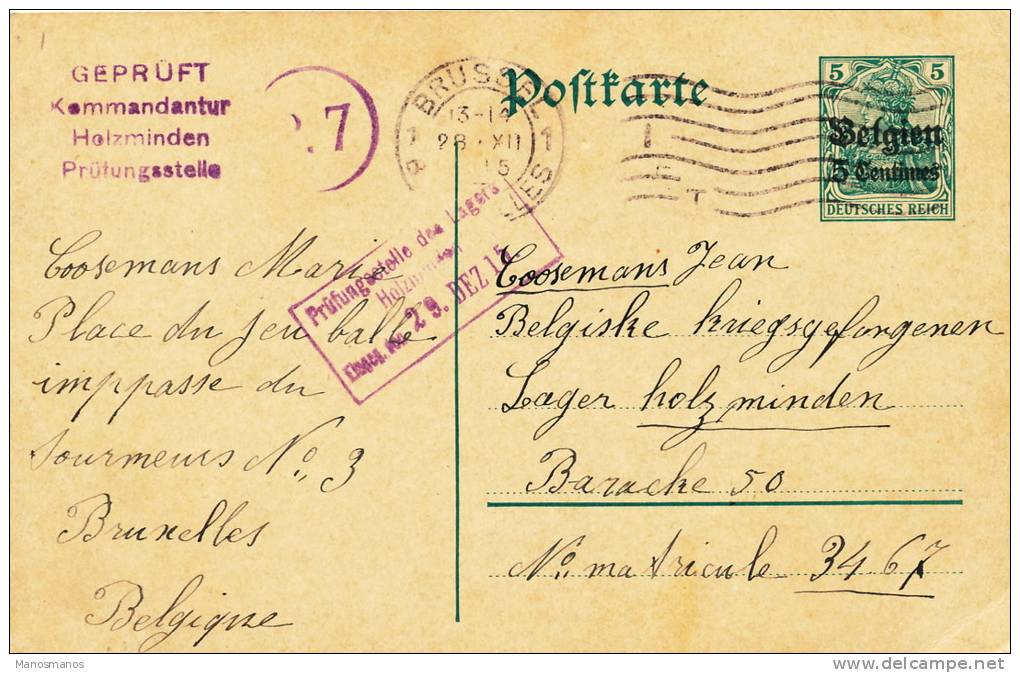 GEPRÜFT
Kommandantur
Holzminden
Prüfungsstelle
7
BRUSSEL
13-14
28 XII
15
1 1
Postkarte
5 5
Belgien
5 Centimes
DEUTSCHES REICH
Prüfungsstelle des Lagers
Holzminden
29. DEZ 15
Coosemans Marie
Place du jeu balle
imppasse du
No. 3
Bruxelles
Belgique
Coosemans Jean
Belgiske kriegsgefangenen
Lager holzminden
Baracke 50
No. matricule 3467
Manosmanos
www.delcampe.net